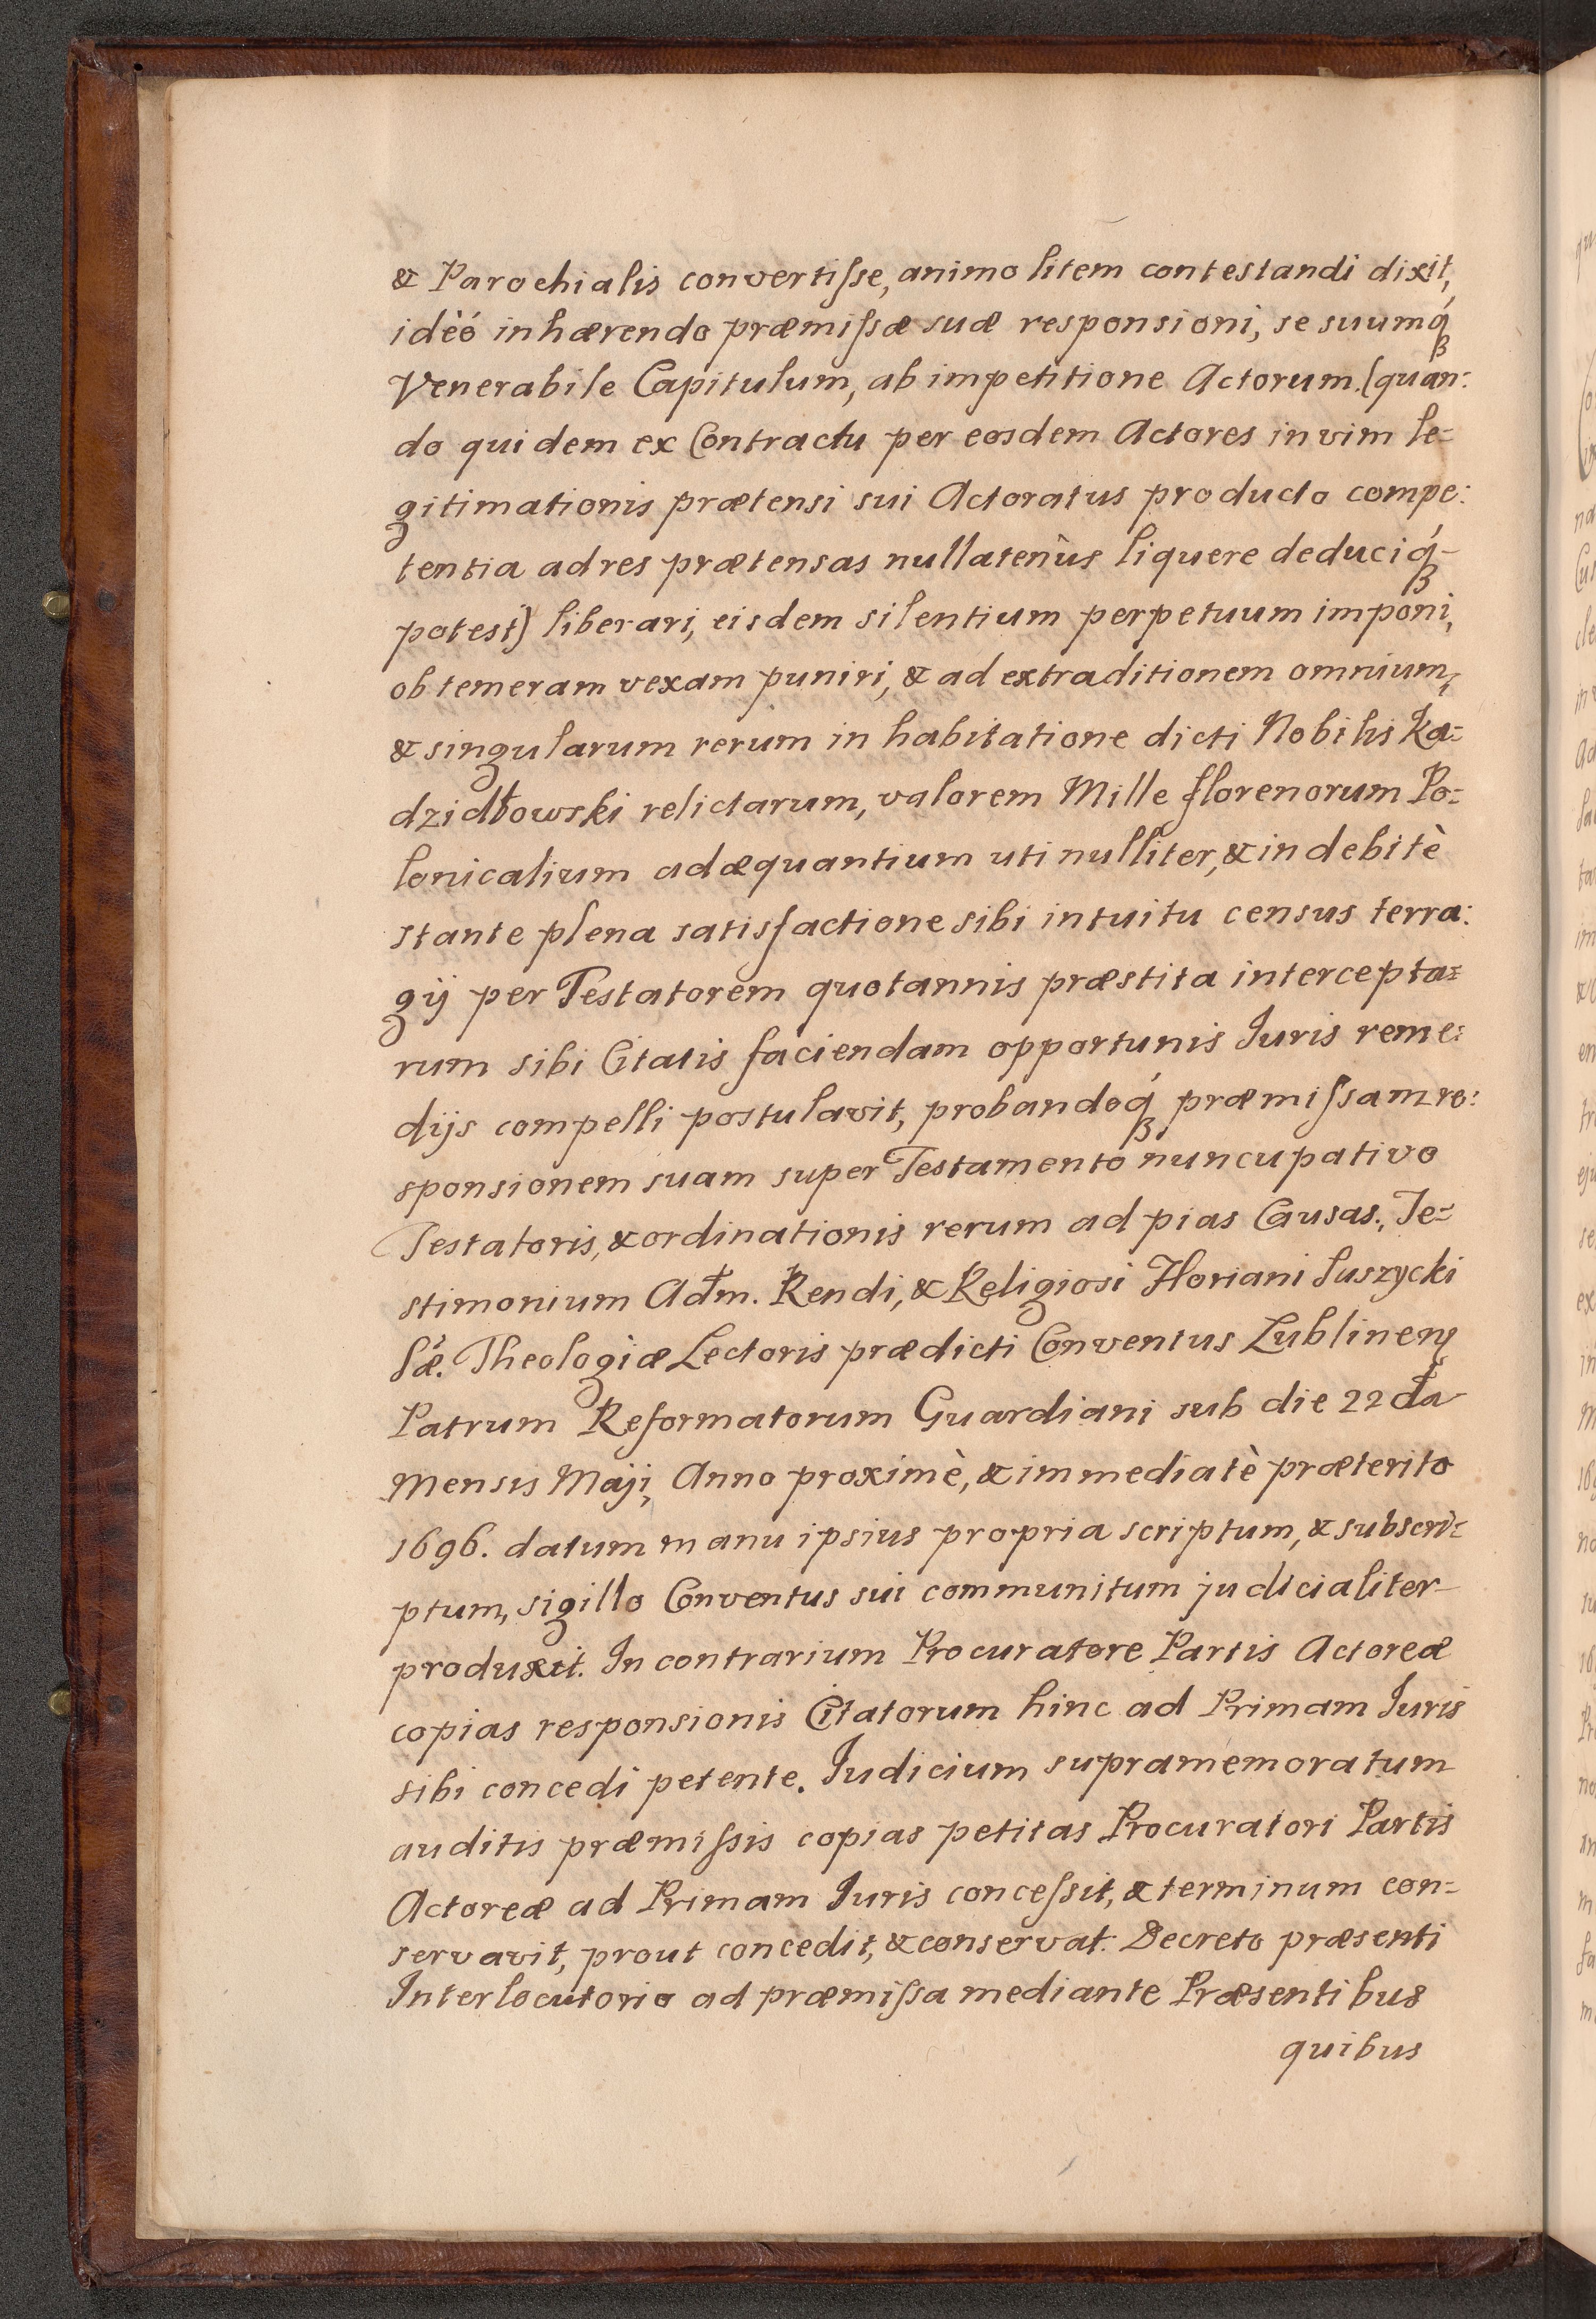 & Parochialis convertiſse, animo litem contestandi dixit,
idèó inhærendo præmiſsæ suæ responsioni, se suumq́ꝫ
Venerabile Capitulum, ab impetitione Actorum. (quan:
do quidem ex Contractu per eosdem Actores in vim le=
gitimationis prætensi sui Actoratus producto compe:
tentia ad res prætensas nullatenùs liquere deduciq́ꝫ
potest) liberari, eisdem silentium perpetuum imponi,
ob temeram vexam puniri, & ad extraditionem omnium,
& singularum rerum in habitatione dicti Nobilis Ka=
dzidłowski relictarum, valorem Mille florenorum Po=
lonicalium adæquantium uti nulliter, & indebitè
stante plena satisfactione sibi intuitu census terra:
gij per Testatorem quotannis præstita intercepta=
rum sibi Citatis faciendam opportunis Iuris reme:
dijs compelli postulavit, probandoq́ꝫ præmiſsam re:
sponsionem suam super Testamento nuncupativo
Testatoris, & ordinationis rerum ad pias Causas., Te=
stimonium Adm. Rendi, & Religiosi Floriani Suszycki
Sæ. Theologiæ Lectoris prædicti Conventus Lublinen̄
Patrum Reformatorum Guardiani sub die 22 da
Mensis Maji, Anno proximè, & immediatè præterito
1696. datum manu ipsius propria scriptum, & subscri=
ptum, sigillo Conventus sui communitum judicialiter
produxit. In contrarium Procuratore Partis Actoreæ
copias responsionis Citatorum hinc ad Primam Iuris
sibi concedi petente. Iudicium supramemoratum
auditis præmiſsis copias petitas Procuratori Partis
Actoreæ ad Primam Iuris conceſsit, & terminum con=
servavit, prout concedit, & conservat. Decreto præsenti
Interlocutorio ad præmiſsa mediante Præsentibus
quibus